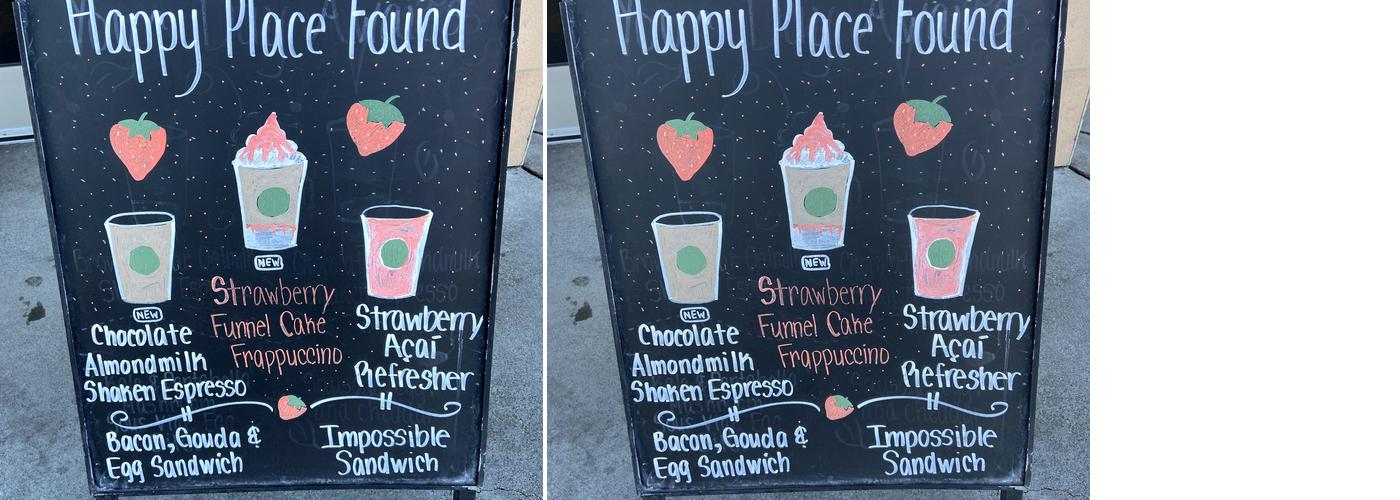 Happy Place Found
NEW
Chocolate
Almondmilk
Shaken Espresso
NEW
Strawberry
Funnel Cake
Frappuccino
Strawberry
Açaí
Refresher
Bacon, Gouda &
Egg Sandwich
Impossible
Sandwich
Happy Place Found
NEW
Chocolate
Almondmilk
Shaken Espresso
NEW
Strawberry
Funnel Cake
Frappuccino
Strawberry
Açaí
Refresher
Bacon, Gouda &
Egg Sandwich
Impossible
Sandwich